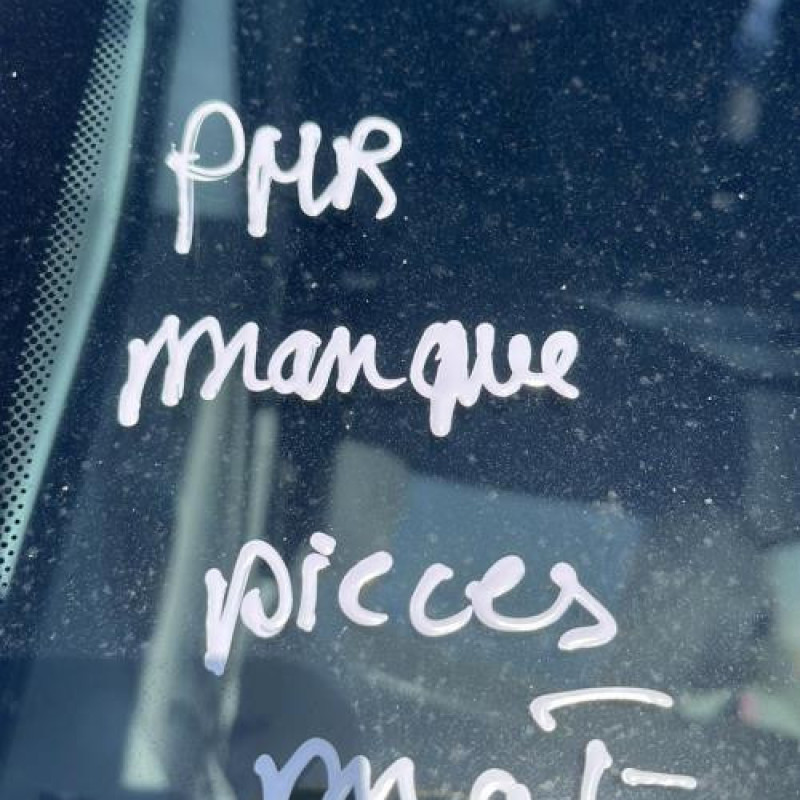 PMR
manque
pièces